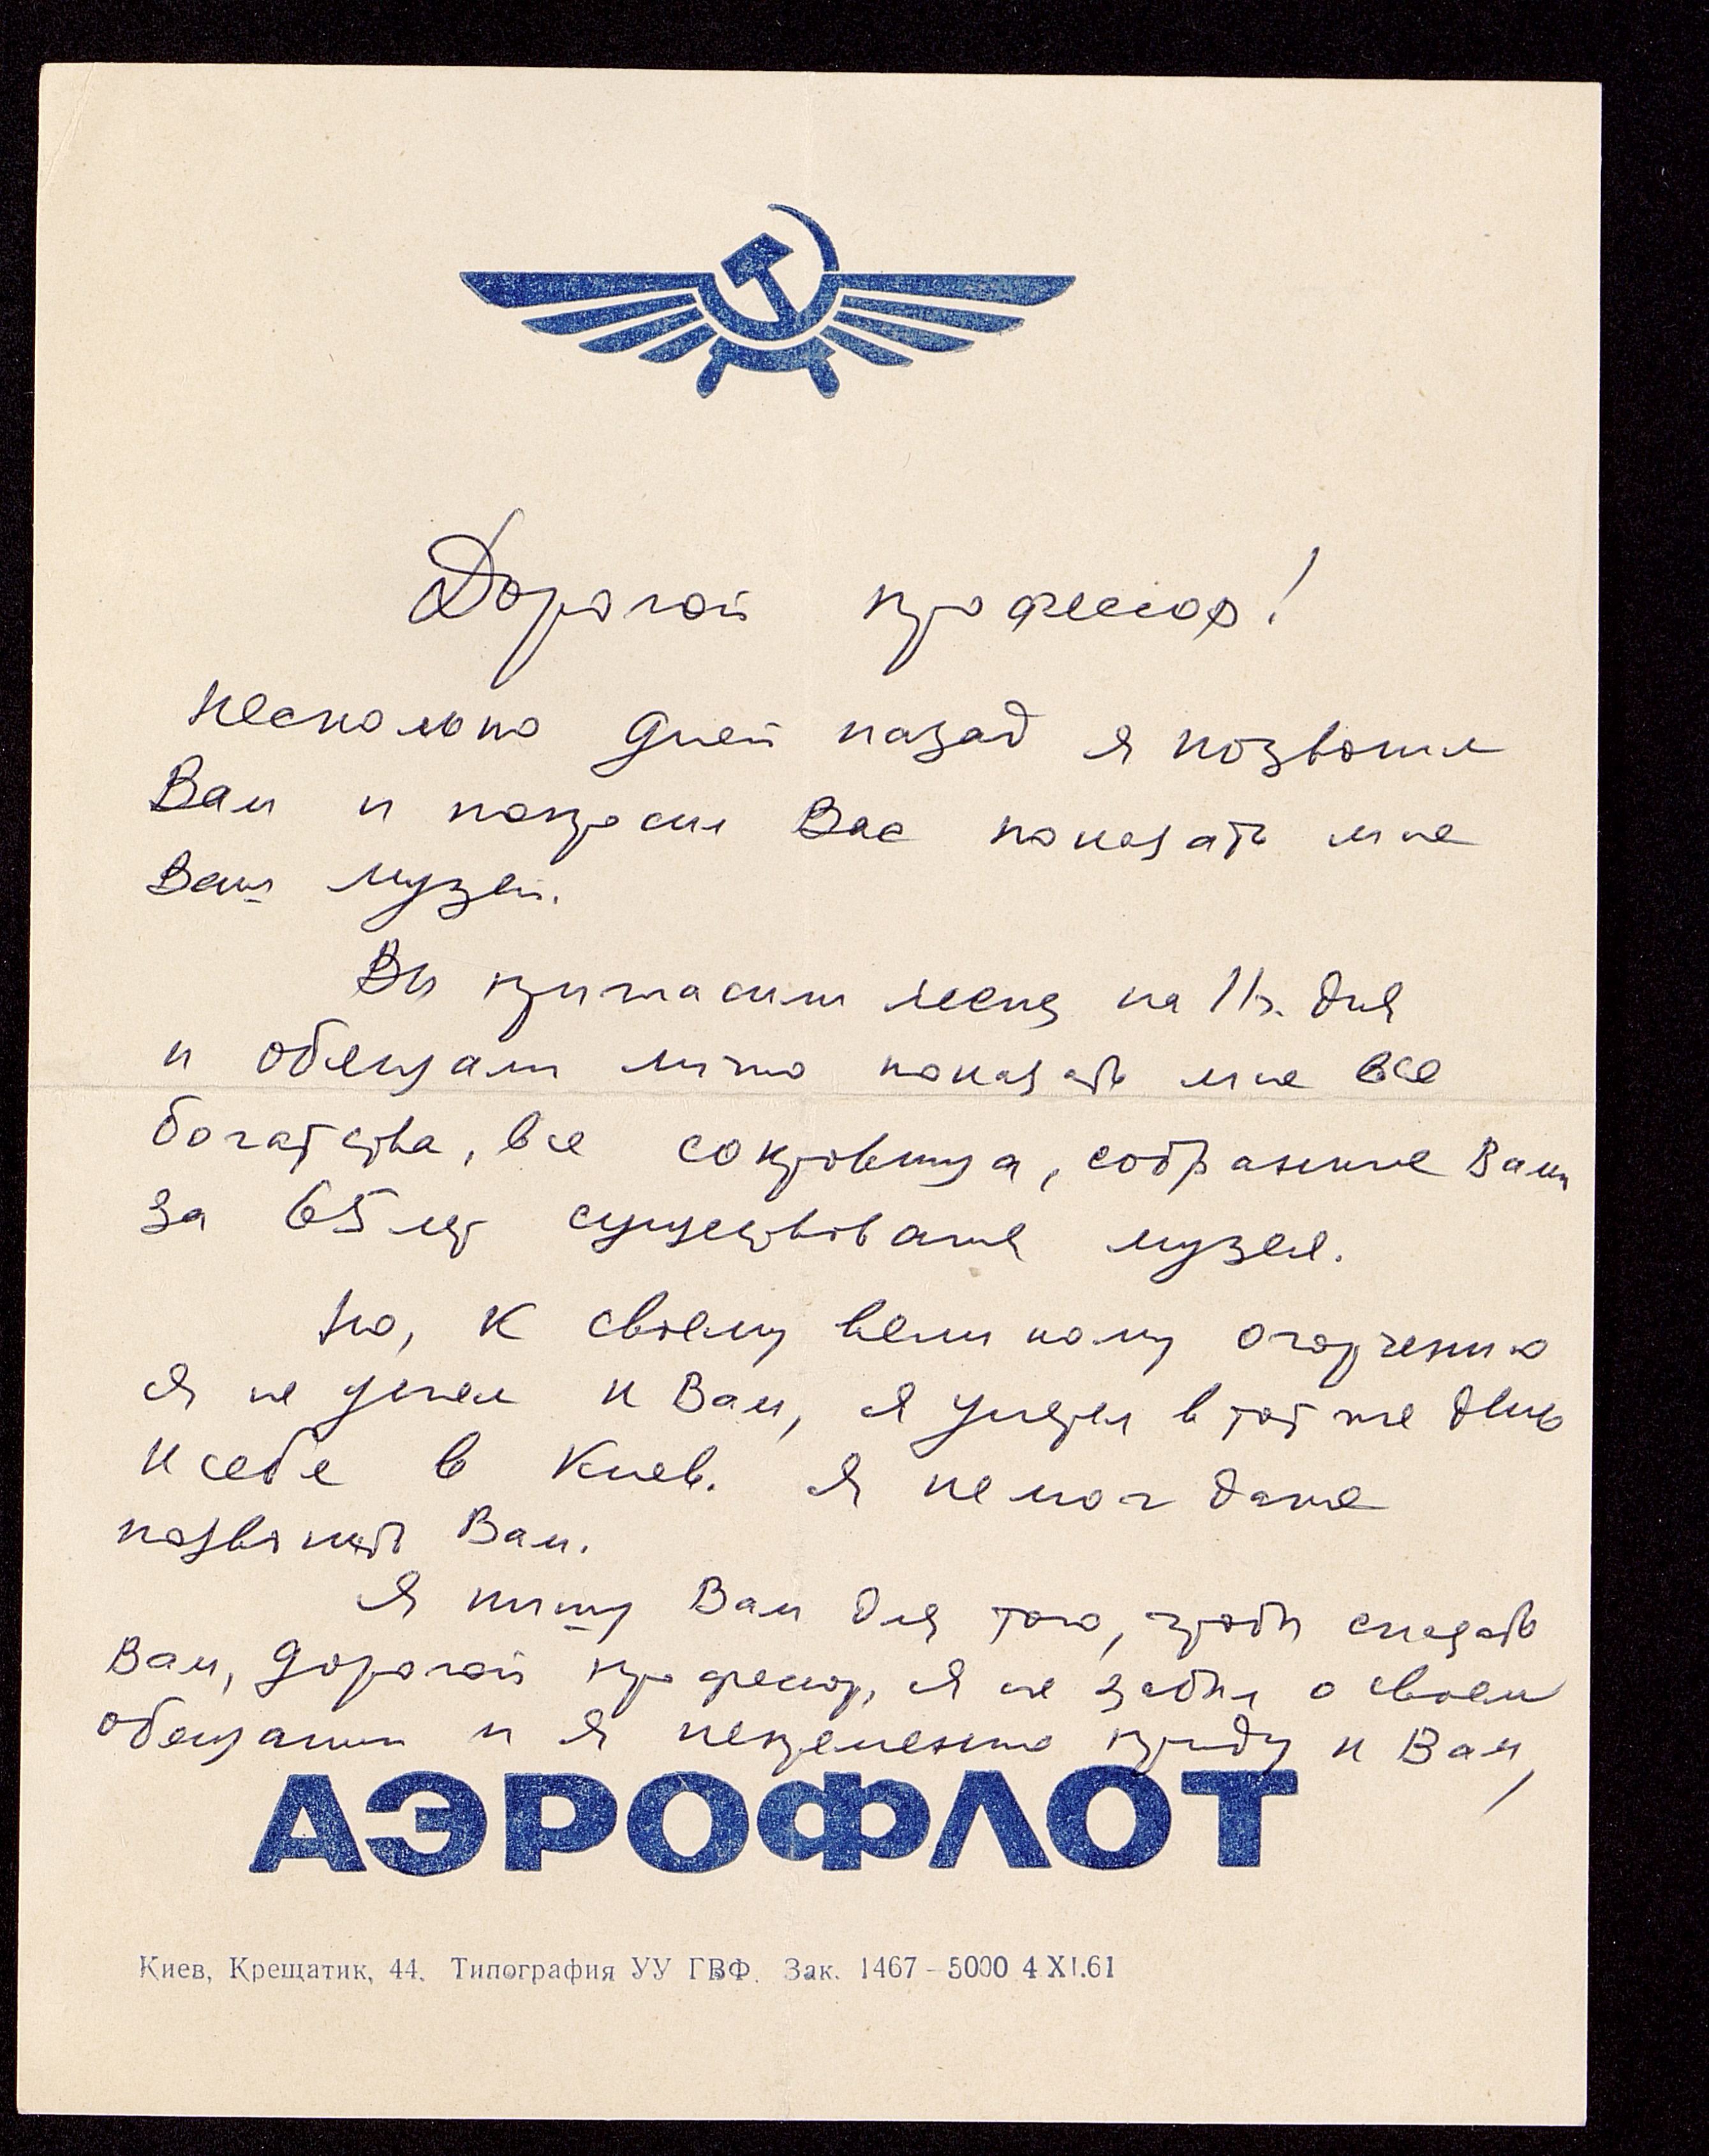 Дорогой профессор!
Несколько дней назад я позвонил
Вам и попросил Вас показать мне
Ваш музей.
Вы пригласили меня на 11 ч. дня
и обещали лично показать мне все
богатства, все сокровища, собранные Вами
за 65 лет существования музея.
Но, к своему великому огорчению
я не успел к Вам, я улетел в тот же день
к себе в Киев. Я не мог даже
позвонить Вам.
Я пишу Вам для того, чтобы сказать
Вам, дорогой профессор, я не забыл о своем
обещании и я непременно приду к Вам,
АЭРОФЛОТ
Киев, Крещатик, 44. Типография УУ ГВФ. Зак. 1467–5000 4 XI.61